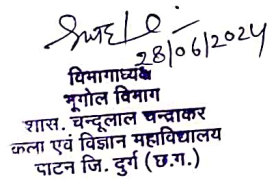 28/06/2024
विभागाध्यक्ष
भूगोल विभाग
शास. चन्दूलाल चन्द्राकर
कला एवं विज्ञान महाविद्यालय
पाटन जि. दुर्ग (छ.ग.)